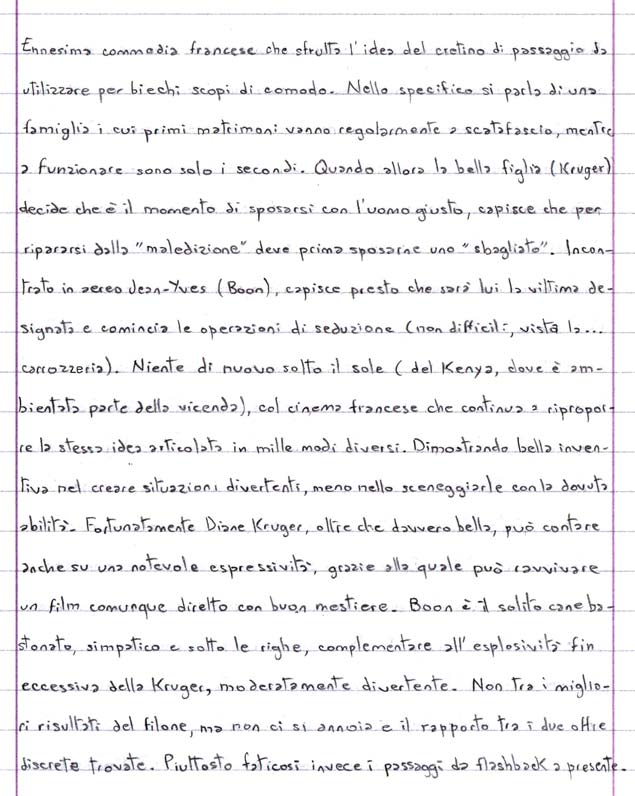 Ennesima commedia francese che sfrutta l'idea del cretino di passaggio da
utilizzare per biechi scopi di comodo. Nello specifico si parla di una
famiglia i cui primi matrimoni vanno regolarmente a scatafascio, mentre
a funzionare sono solo i secondi. Quando allora la bella figlia (Kruger)
decide che è il momento di sposarsi con l'uomo giusto, capisce che per
ripararsi dalla "maledizione" deve prima sposarne uno "sbagliato". Incon-
trato in aereo Jean-Yves (Boon), capisce presto che sarà lui la vittima de-
signata e comincia le operazioni di seduzione (non difficili, vista la...
carrozzeria). Niente di nuovo sotto il sole (del Kenya, dove è am-
bientata parte della vicenda), col cinema francese che continua a ripropor-
re la stessa idea articolata in mille modi diversi. Dimostrando bella inven-
tiva nel creare situazioni divertenti, meno nello sceneggiarle con la dovuta
abilità. Fortunatamente Diane Kruger, oltre che davvero bella, può contare
anche su una notevole espressività, grazie alla quale può ravvivare
un film comunque diretto con buon mestiere. Boon è il solito cane ba-
stonato, simpatico e sotto le righe, complementare all'esplosività fin
eccessiva della Kruger, moderatamente divertente. Non tra i miglio-
ri risultati del filone, ma non ci si annoia e il rapporto tra i due offre
discrete trovate. Piuttosto faticosi invece i passaggi da flashback a presente.